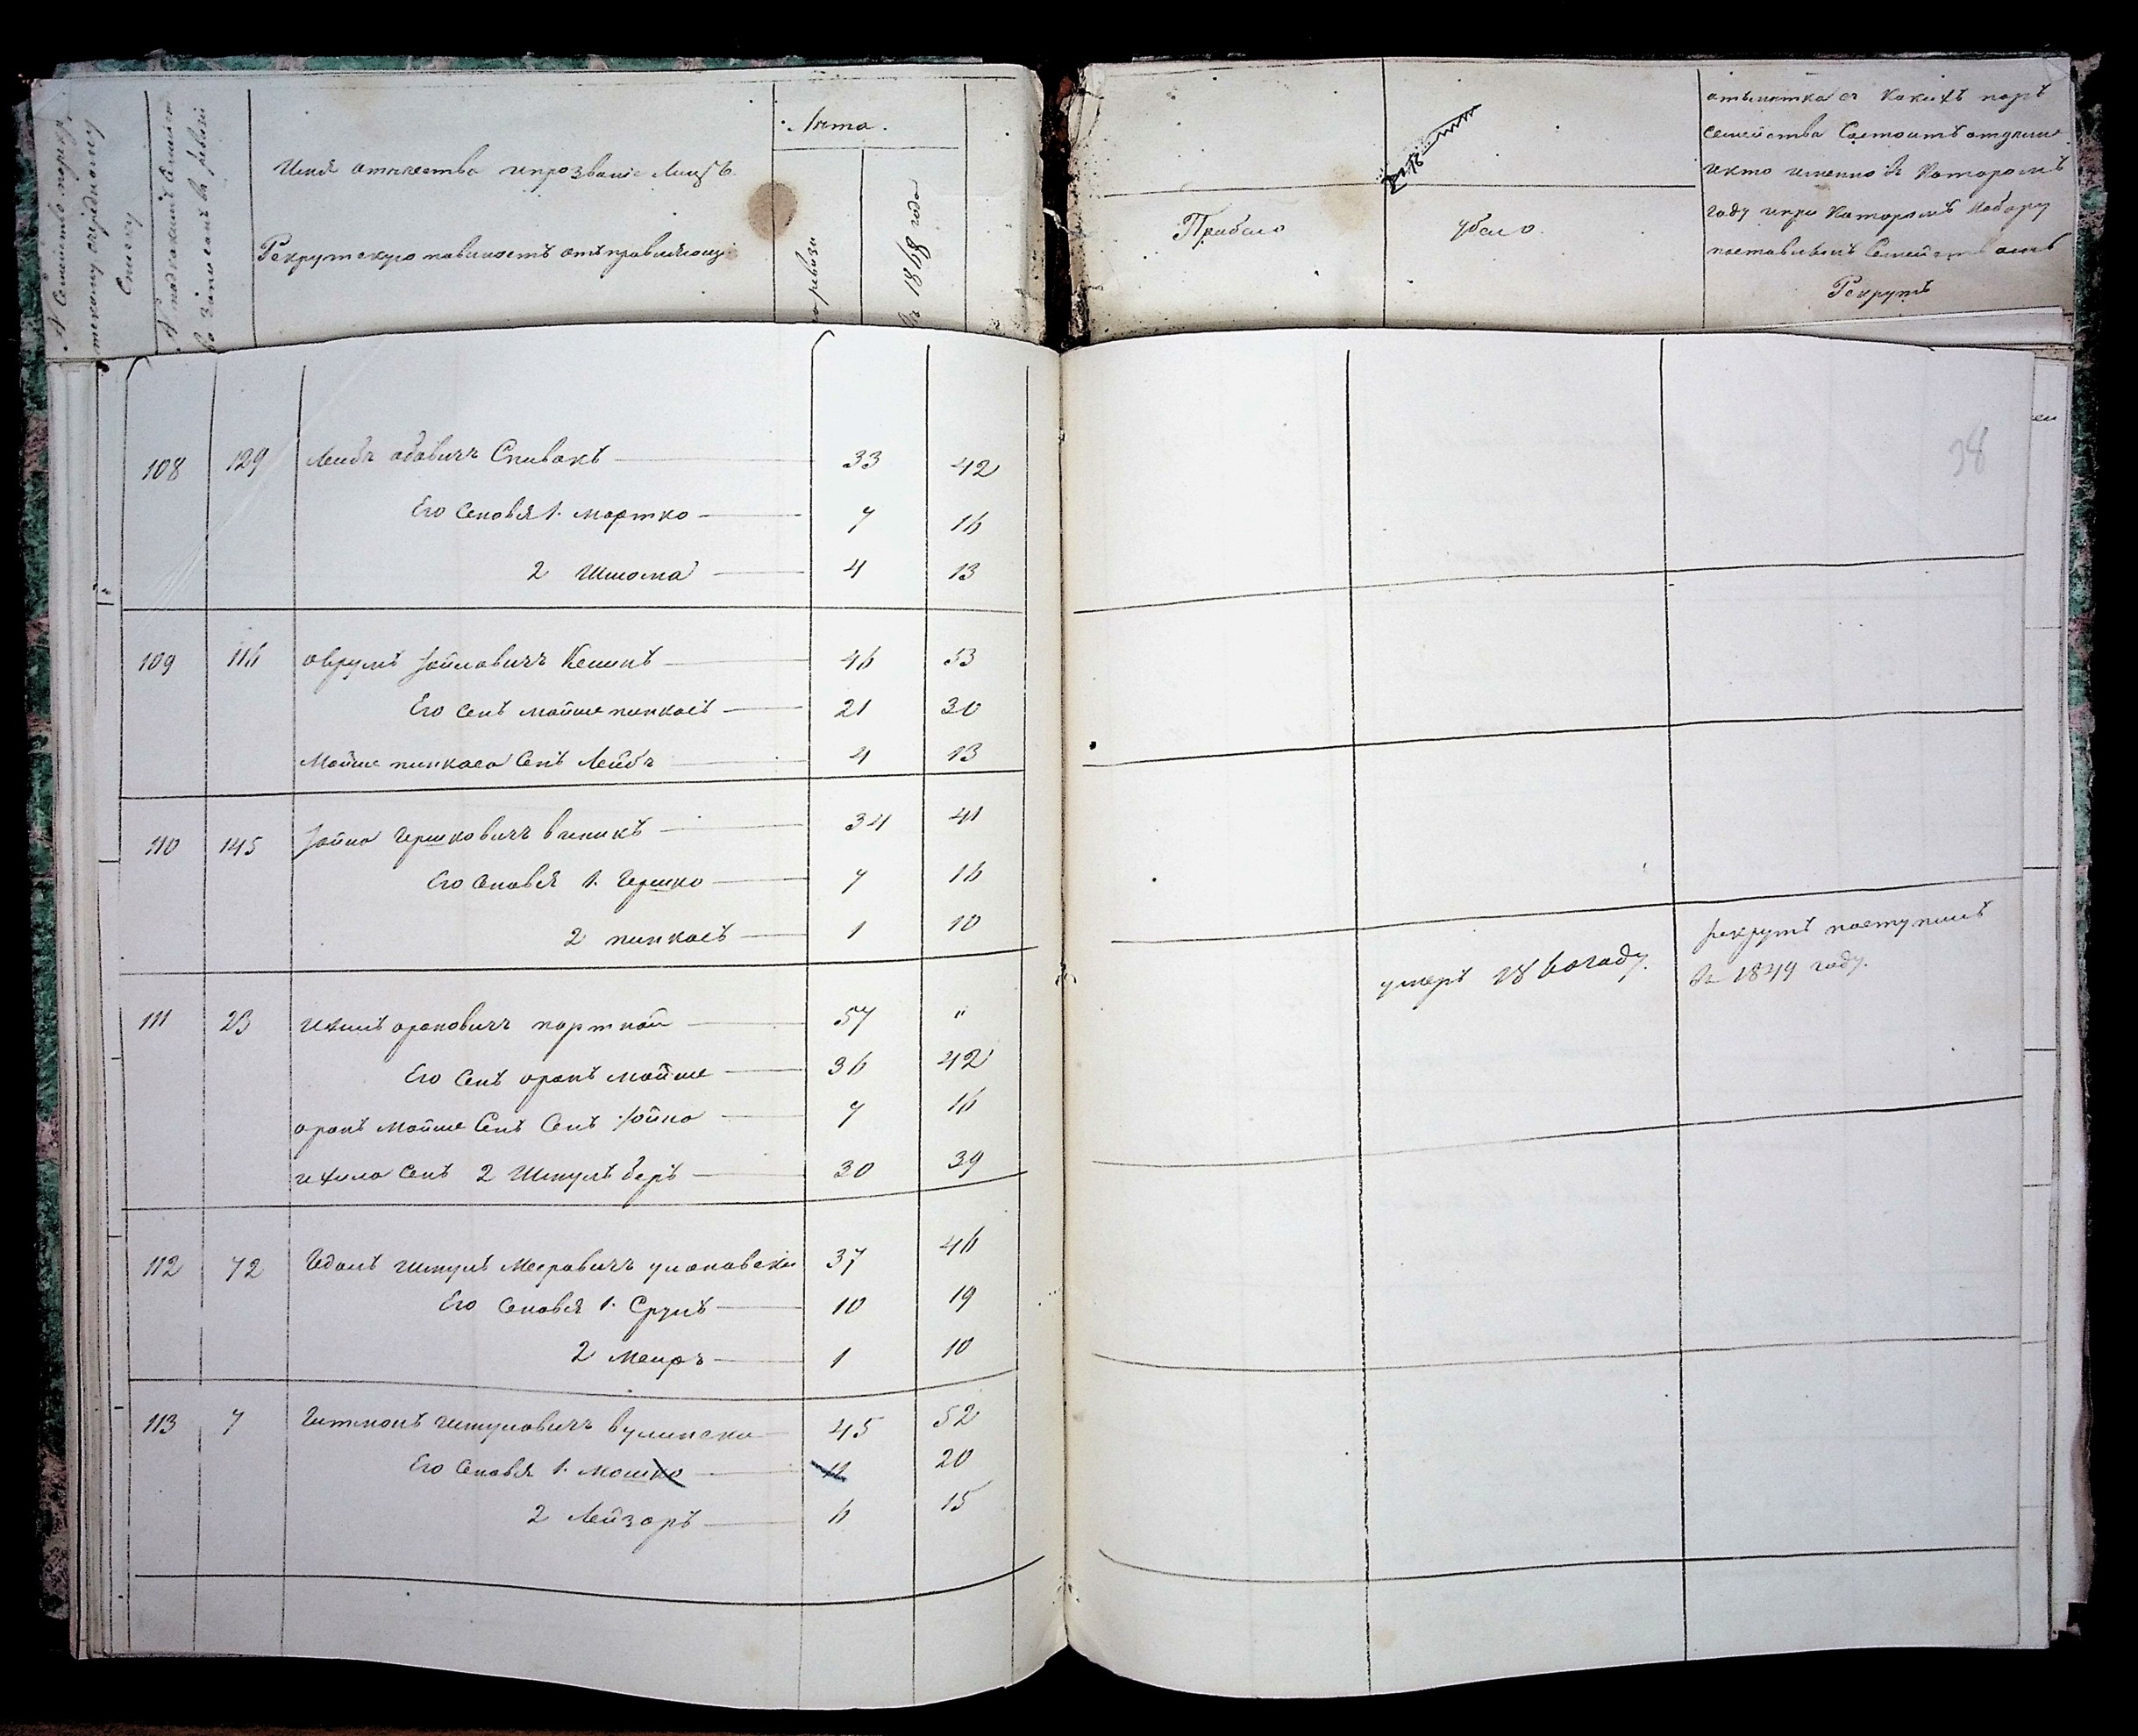 № Семействъ по рекр.
тскому очередному
списку
№ подкакимъ Семейст
во записанъ в ревизй
Имя отчество ипрозвание Лицъ
Рекрутскую повиность отъправляющ
Лета.
по ревизи
въ 1868 году
Прибыло
убыло.
отъметка съ какихъ поръ
семейства Состоитъ отдельно
икто именно въ Которомъ
году ипри Которомъ Наборе
поставленъ Семействомъ
Рекрутъ
38
108 129 Лейбъ абовичъ Спивакъ 33 42
Его Сыновья 1. мортко 7 16
2 Шлиома 4 13
109 116 аврумъ Іойловичъ 46 53
Его Сынъ мойше пинкасъ 21 30
Мойше пинкаса Сынъ Лейбъ 4 13
110 145 Іойна Гершковичъ виникъ 34 41
Его Сыновья 1. Гершко 7 16
2 пинкасъ 1 10
111 23 ихилъ ароновичъ портной 57 "
умеръ 186 году.
рекрутъ поступилъ
въ 1849 году.
Его Сынъ аронъ мойше 36 42
аронъ Мойше Сынъ Сынъ Іойна 7 16
ихила Сынъ 2 Шмулъ беръ 30 39
112 72 Шмулъ Мееровичъ улановски 37 46
Его Сыновья 1. Срулъ 10 19
2 Меиръ 1 10
113 7 Гитманъ Шмуловичъ вулински 45 52
Его Сыновья 1. Мошко 11 20
2 Лейзоръ 6 15